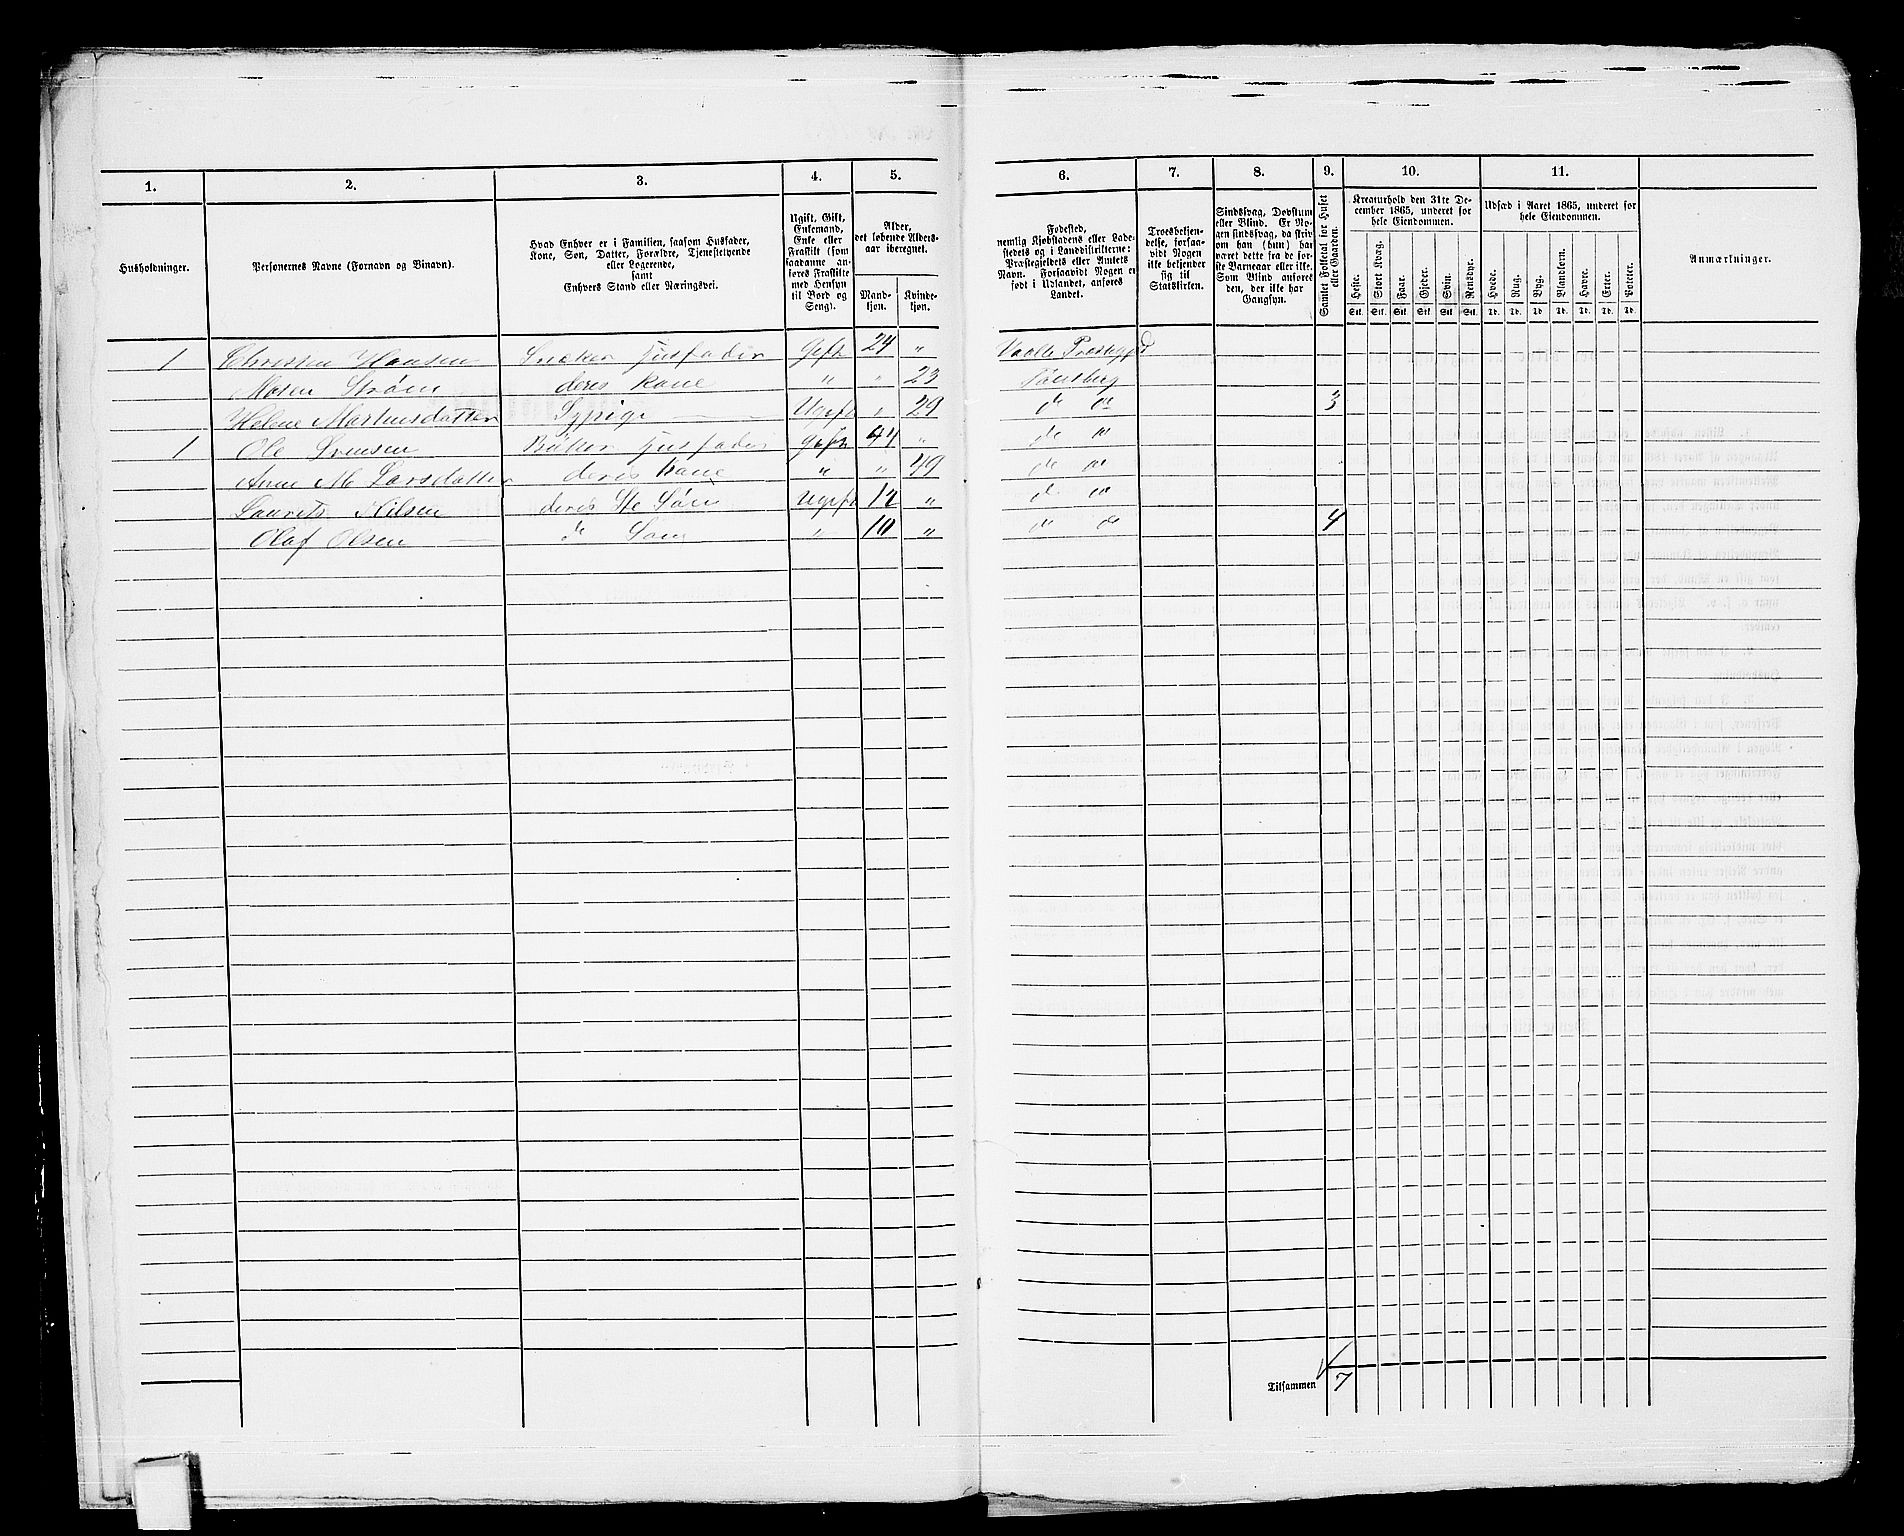 1. 2. 3. 4. 5. 6. 7. 8. 9. 10. 11.
Husholdninger.
Personernes Navne (Fornavn og Binavn).
Hvad Enhver er i Familien, saasom Husfader,
Kone, Søn, Datter, Forældre, Tjenestetyende
eller Logerende,
samt
Enhvers Stand eller Næringsvei.
Ugift, Gift,
Enkemand,
Enke eller
Fraskilt (som
saadanne an-
føres Fraskilte
med Hensyn
til Bord og
Seng).
Alder,
det løbende Alders-
aar iberegnet.
Mand-
kjøn.
Kvinde-
kjøn.
Fødested,
nemlig Kjøbstadens eller Lade-
stedets og i Landdistrikterne:
Præstegjeldets eller Amtets
Navn. Forsaavidt Nogen er
født i Udlandet, anføres
Landet.
Troesbekjen-
delse, forsaa-
vidt Nogen
ikke bekjender
sig til
Statskirken.
Sindssvag, Døvstum
eller Blind. Er No-
gen sindssvag, da skriv
om han (hun) har
været dette fra de før-
ste Barneaar eller ikke.
Som Blind anføres
den, der ikke har
Gangsyn.
Samlet Folketal for Huset
eller Gaarden.
Kreaturhold den 31te De-
cember 1865, underet for
hele Eiendommen.
Heste. Stort Kvæg. Faar. Gjeder. Svin. Rensdyr.
Stk. Stk. Stk. Stk. Stk. Stk.
Udsæd i Aaret 1865, underet for
hele Eiendommen.
Hvede. Rug. Byg. Blandkorn. Havre. Erter. Poteter.
Td. Td. Td. Td. Td. Td. Td.
Anmærkninger.
1 Christen Hansen Snecker Husfader Gift 24 " Vaale Prestegjd
Maren Strøm deres Kone " " 23 Tønsberg
Helene Martinsdatter Sypige Ugift " 29 do do 3
1 Ole Svensen Bøkker Husfader gift 44 " do do
Anne M Larsdatter deres Kone " " 49 do do
Laurits Nilsen deres Ste Søn Ugift 12 " do do
Olaf Olsen do Søn " 10 " do do 4
Tilsammen 7